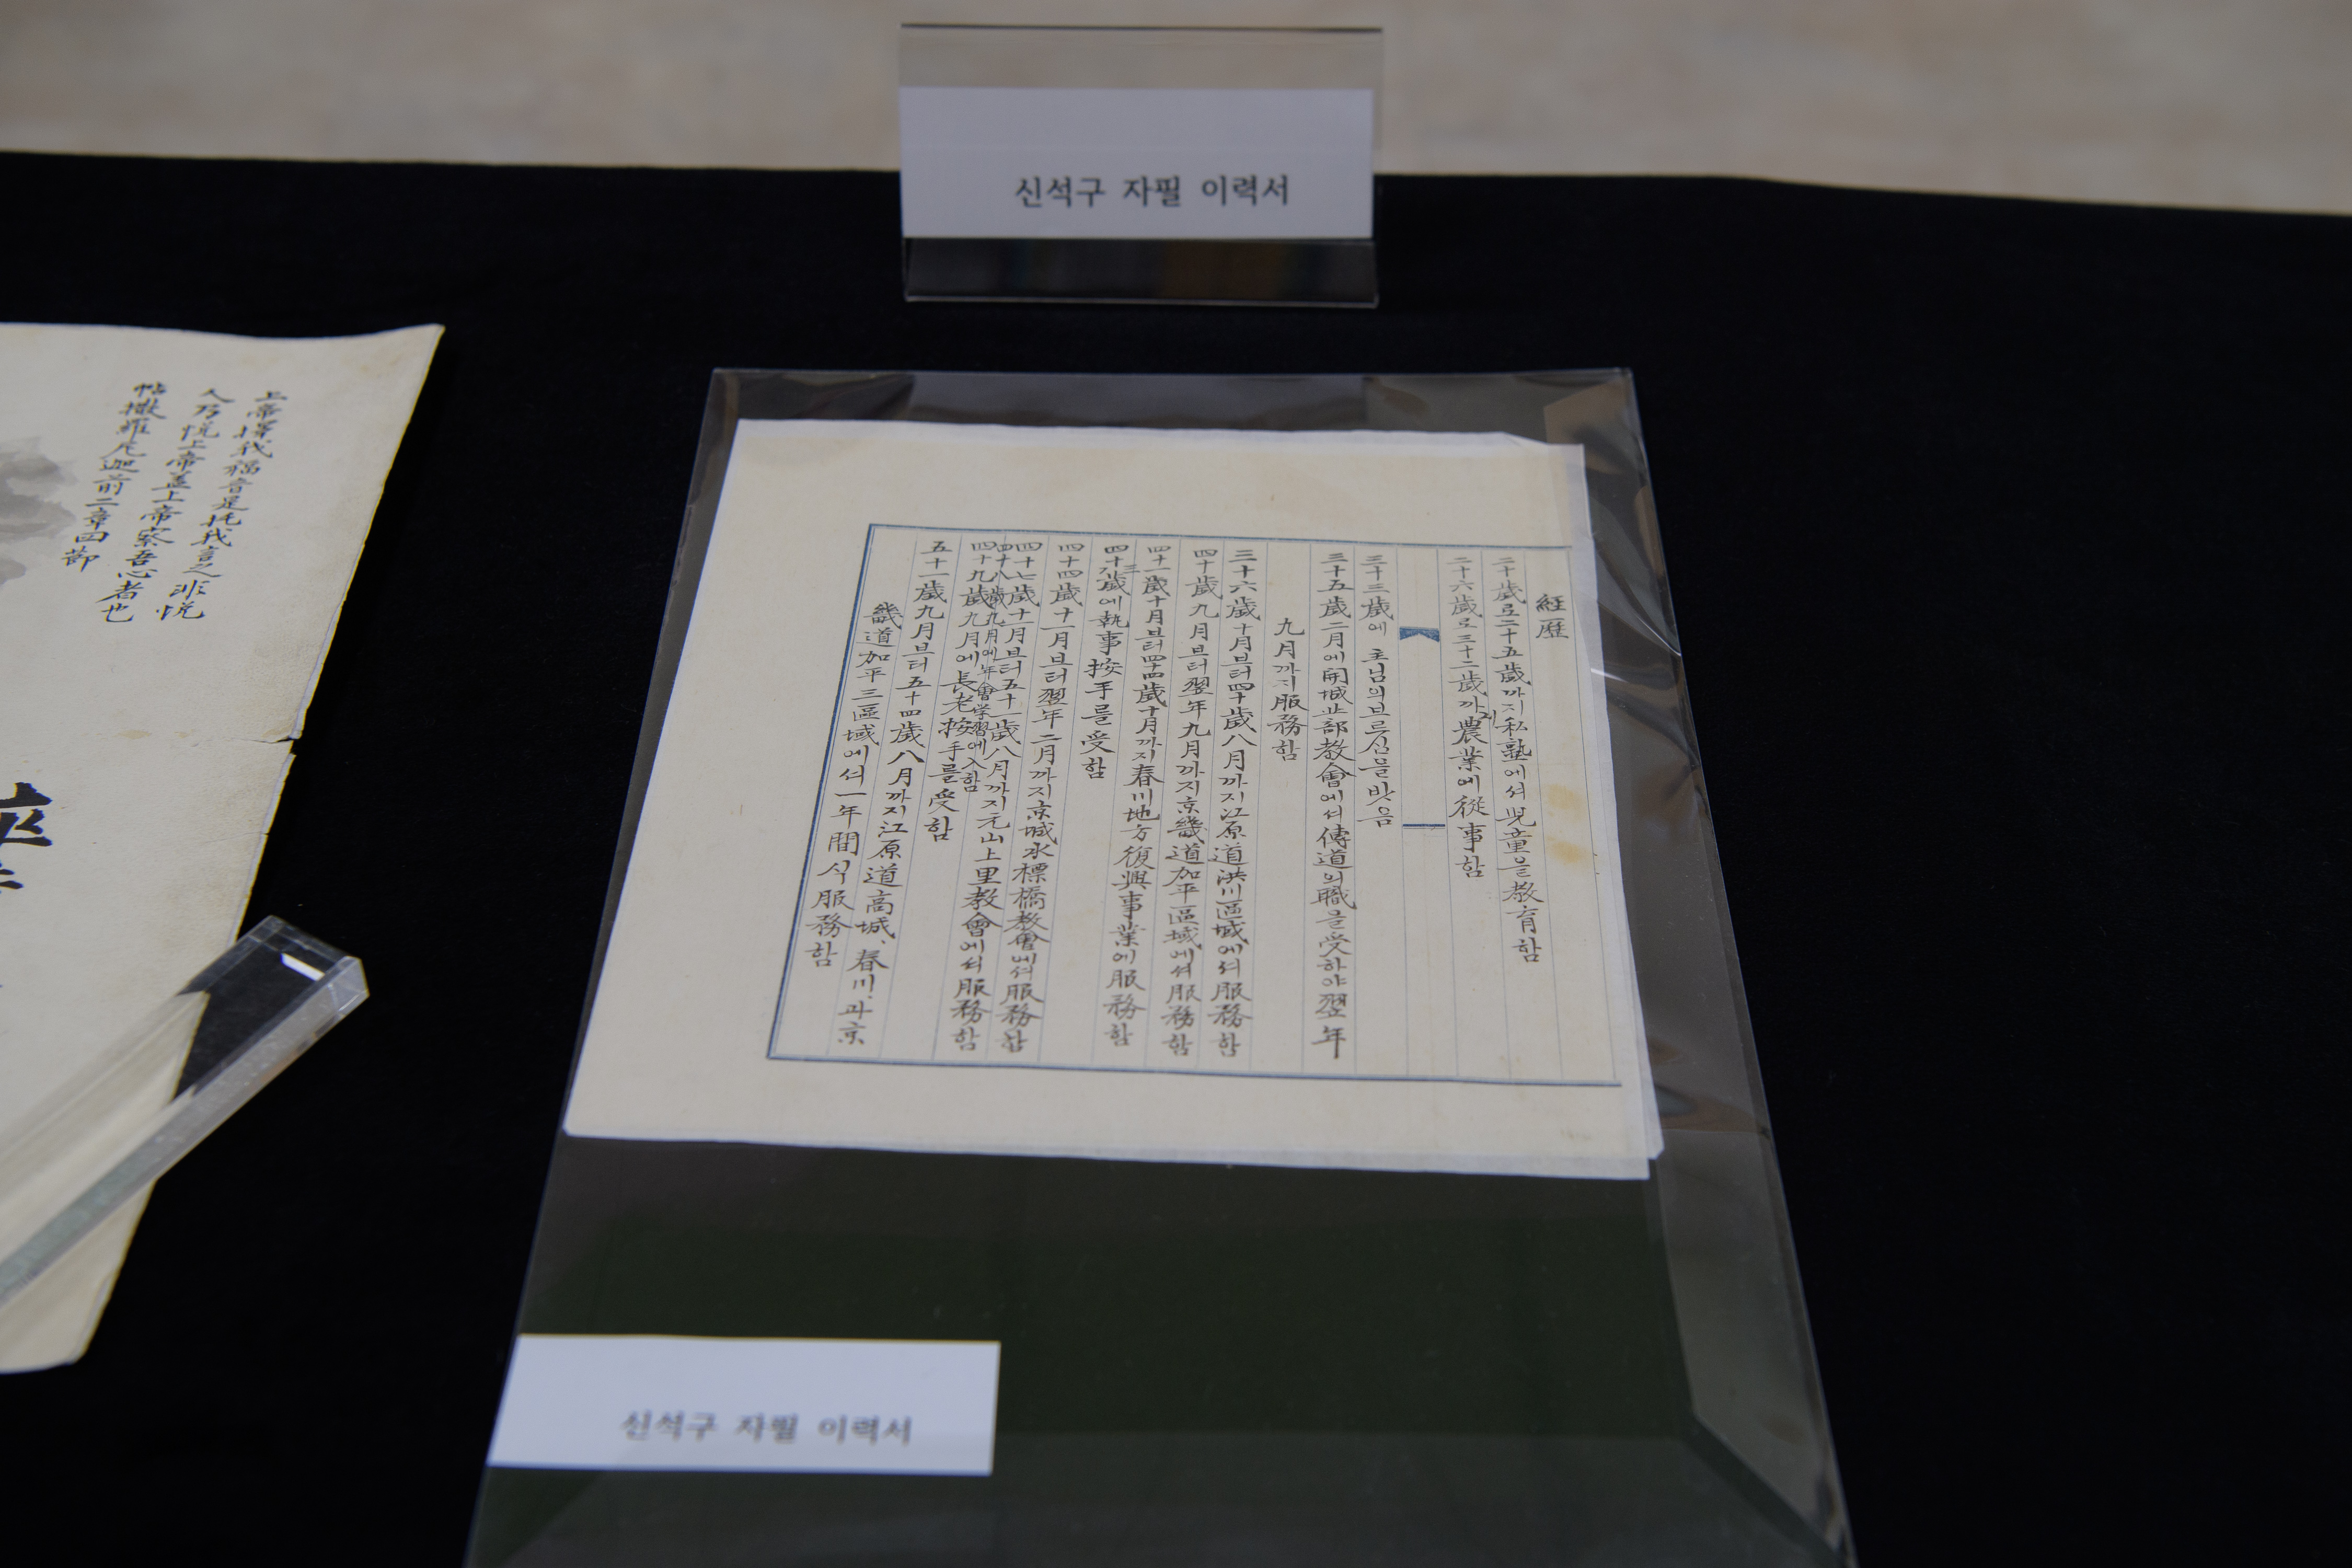 신석구 자필 이력서
経歷
二十歲로二十五歲까지私塾에셔児童을教育함
二十六歲로三十二歲까지農業에從事함
三十三歲에 主님의부르심을밧음
三十五歲二月에開城北部教會에셔傳道의職을受하야翌年
九月까지服務함
三十六歲十月부터四十歲八月까지江原道洪川區域에셔服務함
四十歲九月부터翌年九月까지京畿道加平區域에셔服務함
四十一歲十月부터四十四歲十月까지春川地方復興事業에服務함
四十三歲에執事按手를受함
四十四歲十一月부터翌年二月까지京城水標橋教會에셔服務함
四十七歲十一月부터五十一歲八月까지元山上里教會에셔服務함
四十八歲九月에年會学習에入함
四十九歲九月에長老按手를受함
五十一歲九月부터五十四歲八月까지江原道高城、春川、과京
畿道加平三區域에셔一年間식服務함
上帝擇我福音是托我言之非悅
人乃悅上帝蓋上帝察吾心者也
帖撒羅尼迦前二章四節
신석구 자필 이력서